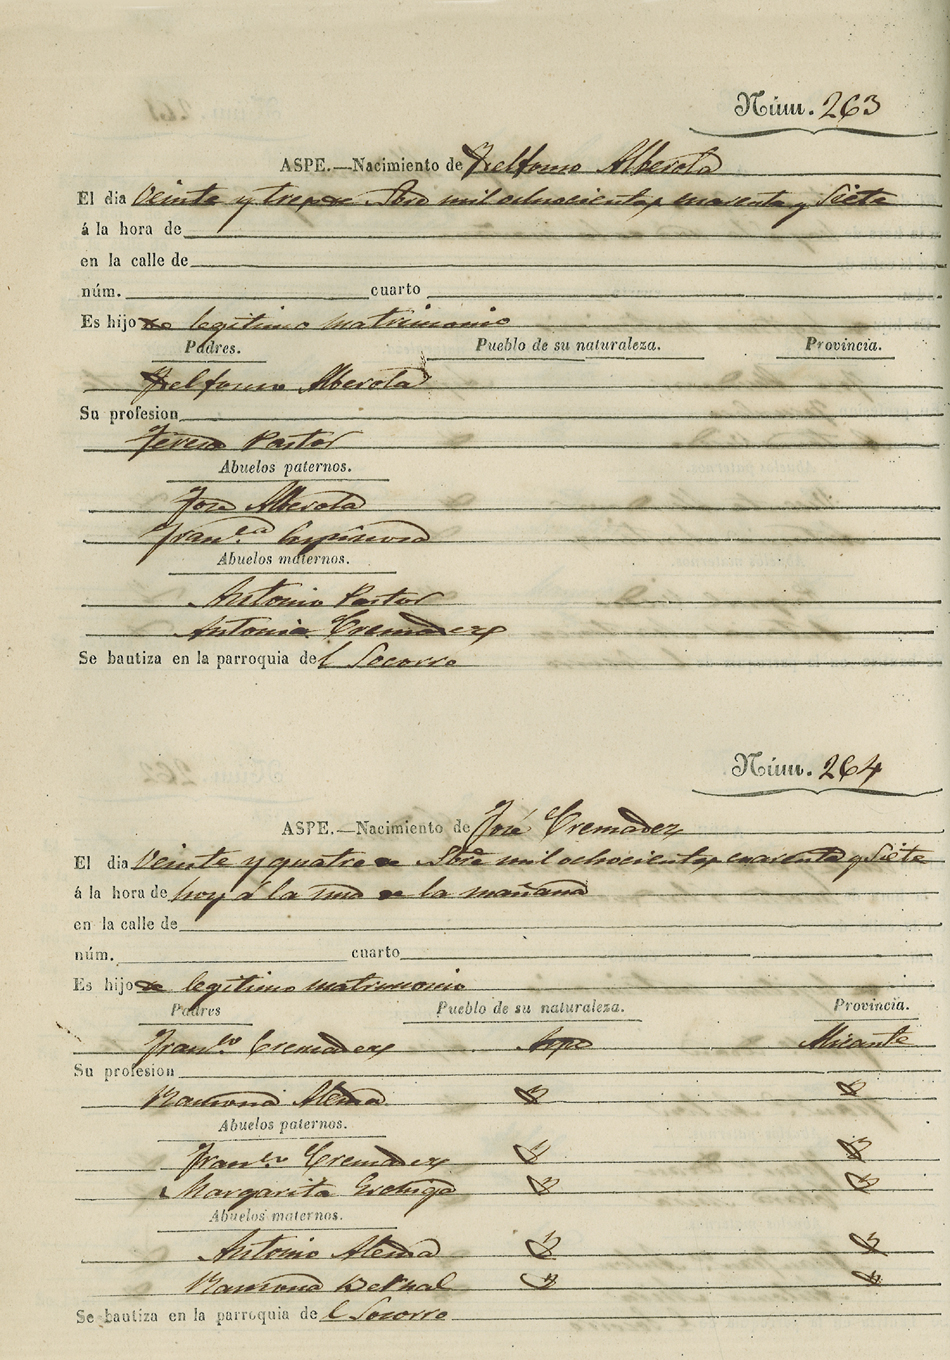 Núm. 263
ASPE.—Nacimiento de Yldefonso Alberola
El dia Veinte y tres de Sbre mil ochocientos cuarenta y Siete
á la hora de
en la calle de
núm. cuarto
Es hijo de legitimo matrimonio
Padres. Pueblo de su naturaleza. Provincia.
Yldefonso Alberola
Su profesion
Teresa Pastor
Abuelos paternos.
Jose Alberola
Fran.ca
Abuelos maternos.
Antonio Pastor
Antonia Cremades
Se bautiza en la parroquia del Socorro
Núm. 264
ASPE.—Nacimiento de José Cremades
El dia Veinte y quatro de Sbre mil ochocientos cuarenta y Siete
á la hora de hoy á la una de la mañana
en la calle de
núm. cuarto
Es hijo de legitimo matrimonio
Padres Pueblo de su naturaleza. Provincia.
Fran.co Cremades Aspe Alicante
Su profesion
Ramona Alenda
Abuelos paternos.
Fran.co Cremades
Margarita
Abuelos maternos.
Antonio Alenda
Ramona Bernal
Se bautiza en la parroquia del Socorro